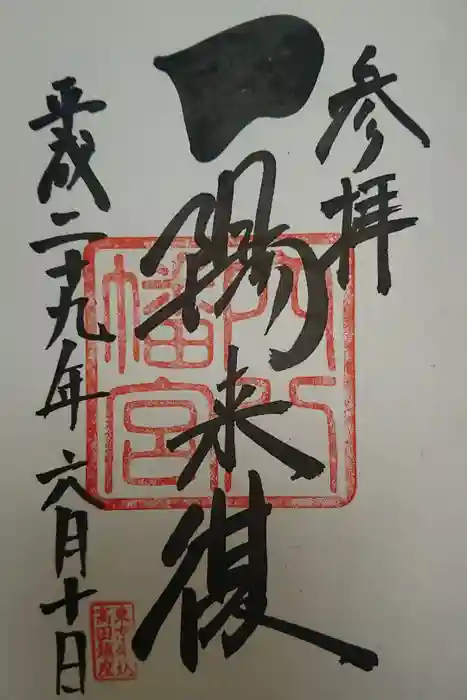 参拝
一陽来復
平成二十九年六月十日
穴八幡宮